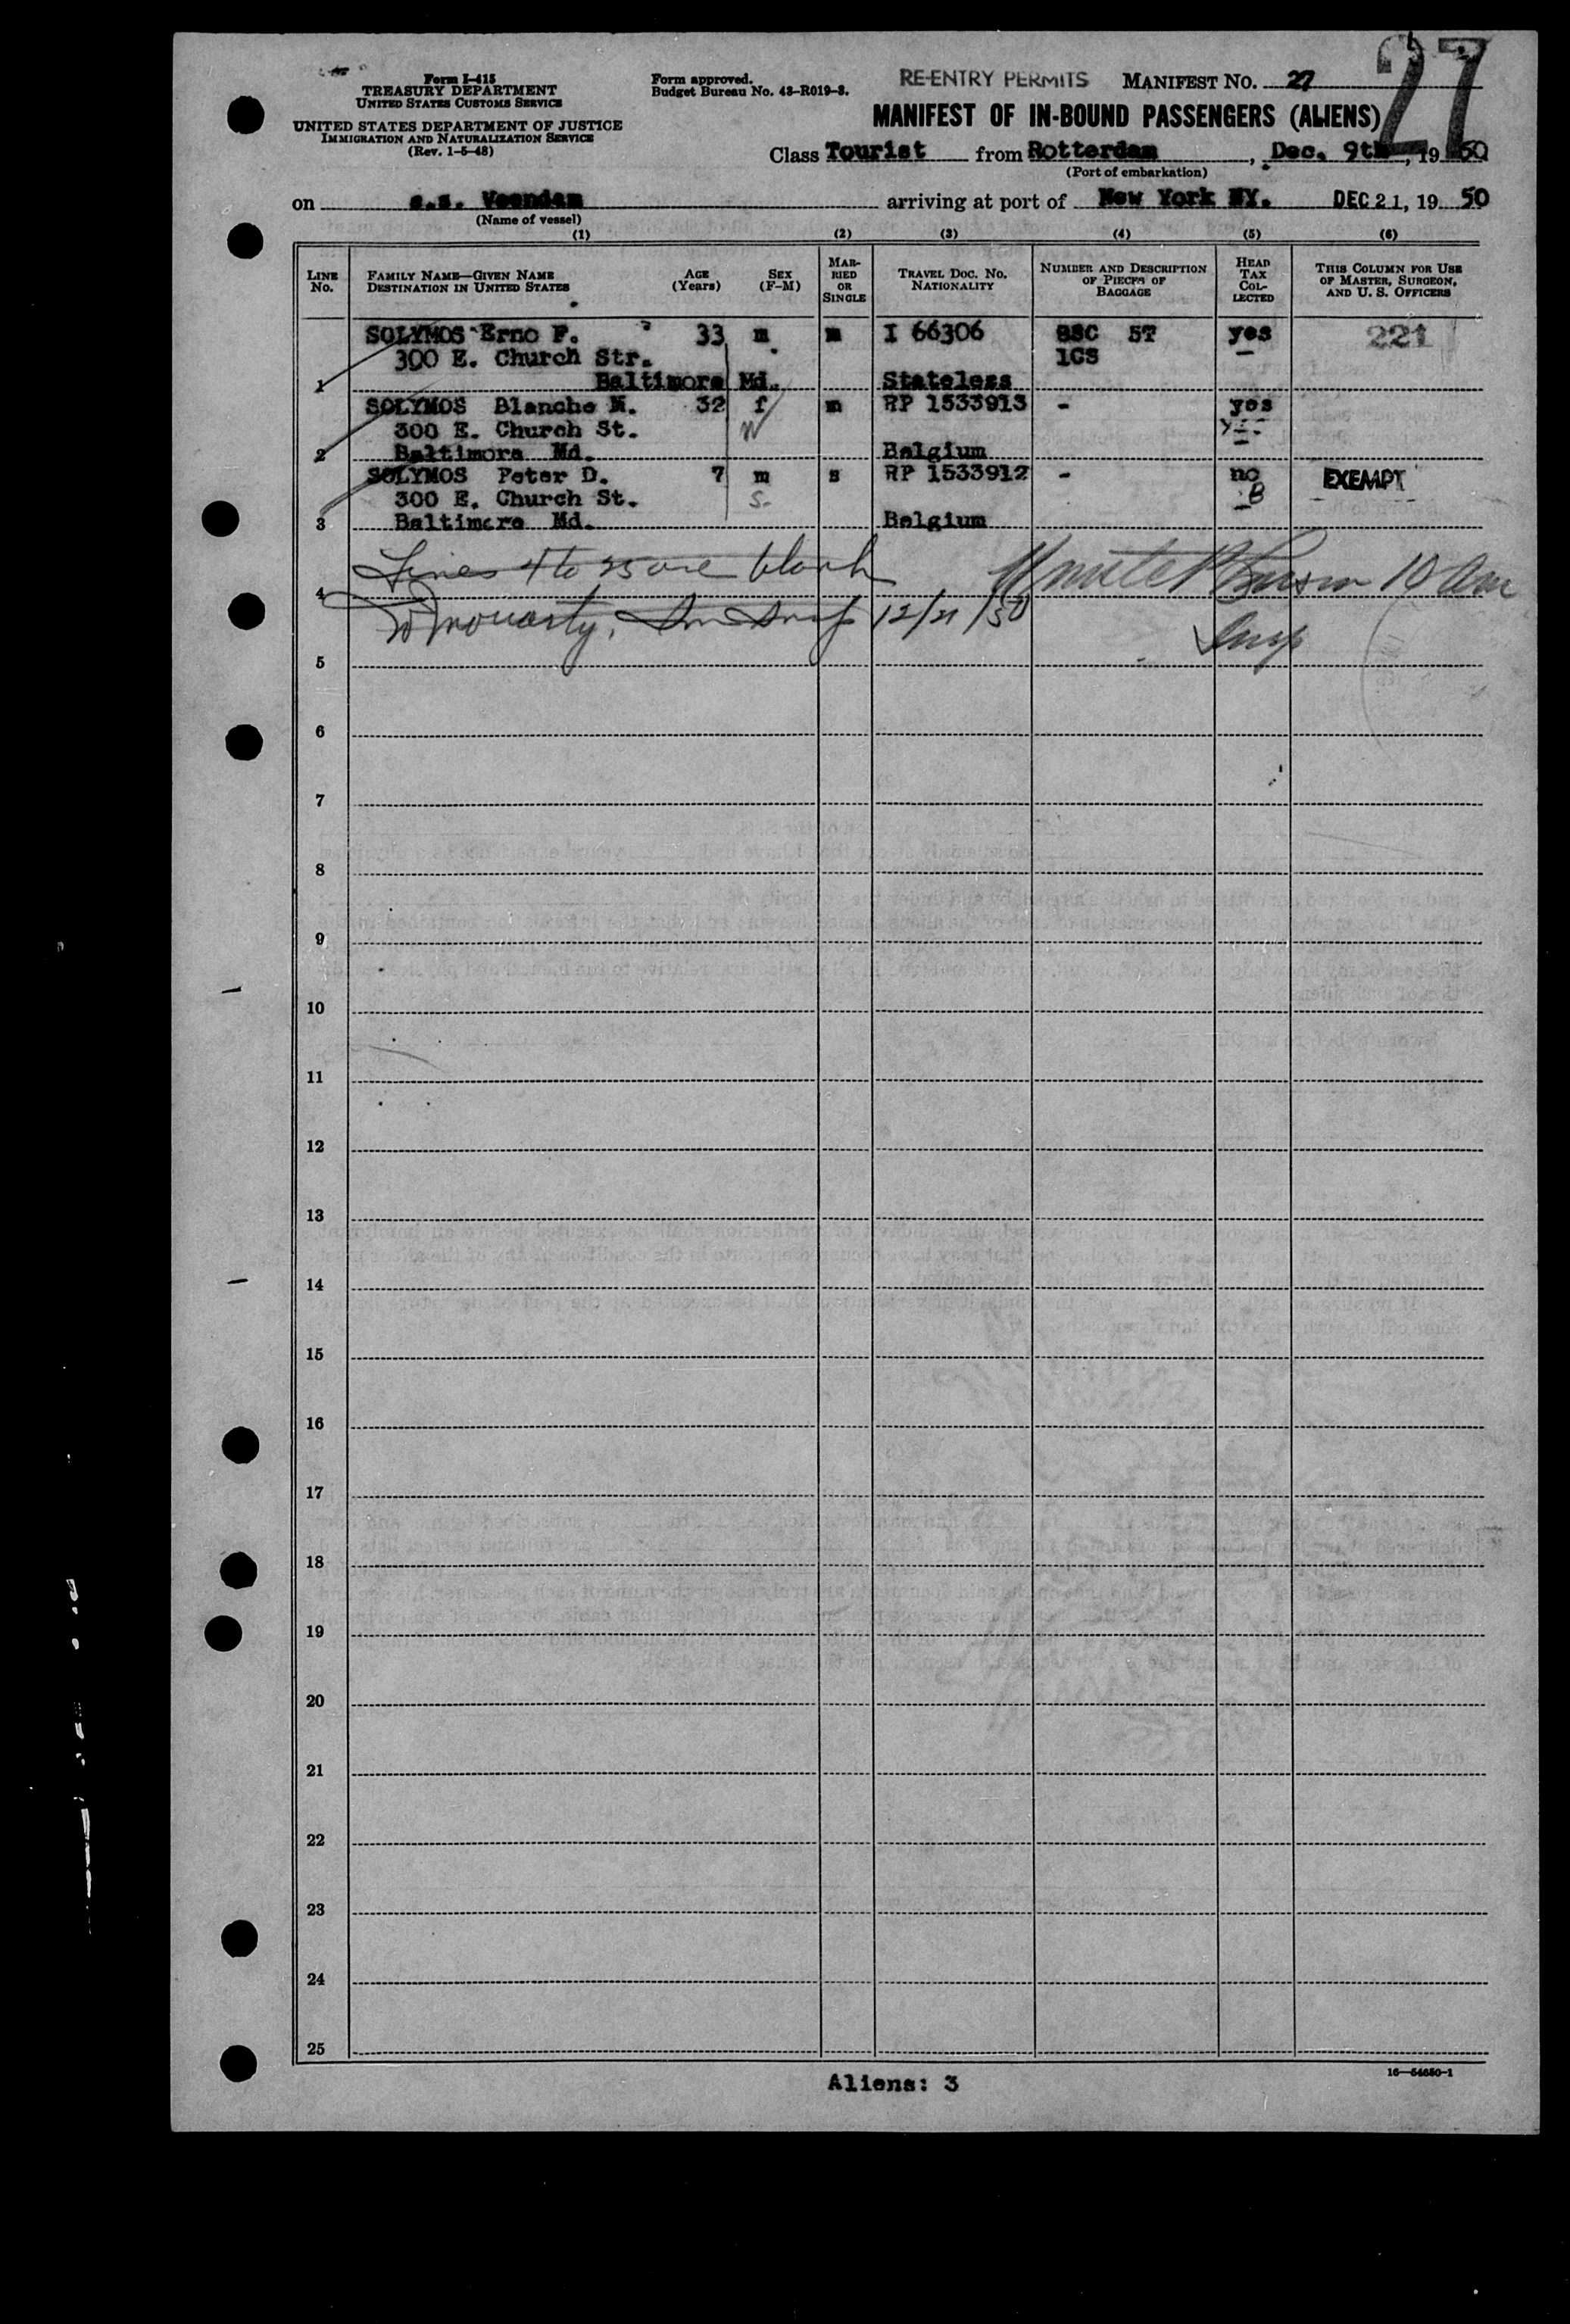 27
Form I-415
TREASURY DEPARTMENT
UNITED STATES CUSTOMS SERVICE
UNITED STATES DEPARTMENT OF JUSTICE
IMMIGRATION AND NATURALIZATION SERVICE
(Rev. 1-5-48)
Form approved.
Budget Bureau No. 43-R019-3.
RE-ENTRY PERMITS MANIFEST NO. 27
MANIFEST OF IN-BOUND PASSENGERS (ALIENS)
Class Tourist from Rotterdam, Dec. 9th, 1950
(Port of embarkation)
on s.s. Veendam arriving at port of New York NY. DEC 21, 1950
(Name of vessel)
(1) (2) (3) (4) (5) (6)
LINE NO.
FAMILY NAME—GIVEN NAME
DESTINATION IN UNITED STATES
AGE (Years)
SEX (F-M)
MARRIED OR SINGLE
TRAVEL DOC. NO.
NATIONALITY
NUMBER AND DESCRIPTION OF PIECES OF BAGGAGE
HEAD TAX COLLECTED
THIS COLUMN FOR USE OF MASTER, SURGEON, AND U. S. OFFICERS
SOLYMOS Erno F. 33 m m I 66306 8SC 5T yes 221
300 E. Church Str. 1CS
1 Baltimore Md. Stateless
SOLYMOS Blanche M. 32 f m RP 1533913 - yes
300 E. Church St.
2 Baltimore Md. Belgium
SOLYMOS Peter D. 7 m s RP 1533912 - no EXEMPT
300 E. Church St. S
3 Baltimore Md. Belgium
Lines 4 to 25 are blank
4
12/21/50
Insp
5
6
7
8
9
10
11
12
13
14
15
16
17
18
19
20
21
22
23
24
25
Aliens: 3
16—54650-1